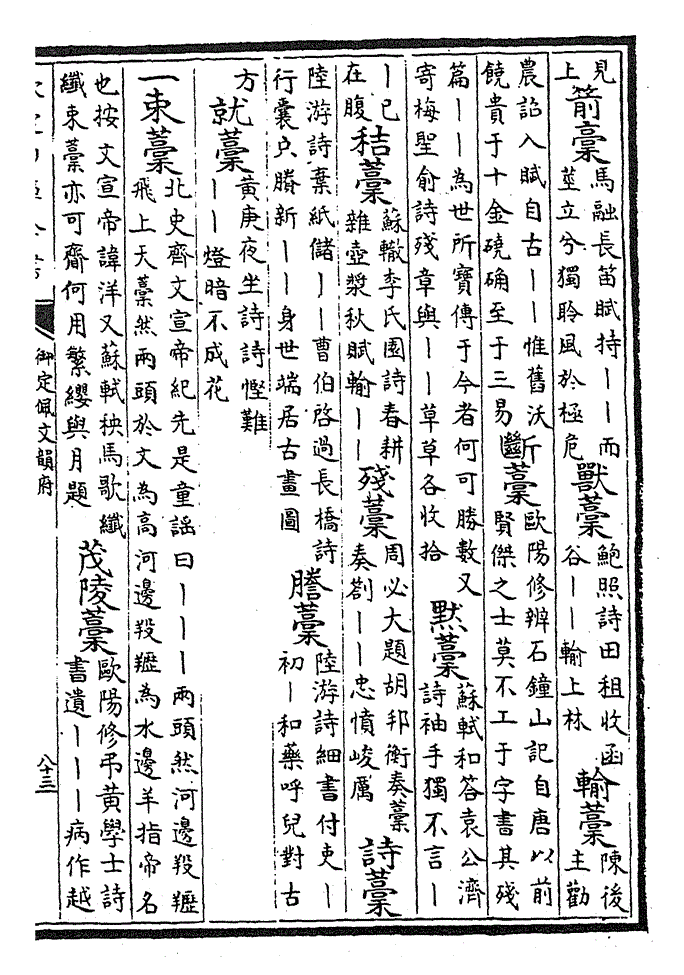 見
上
箭稾
馬融長笛賦持——而
莖立兮獨聆風於極危
獸藁
鮑照詩田租收函
谷——輸上林
輸藁
陳後
主勸
農詔入賦自古——惟舊沃
饒貴于十金磽确至于三易
斷藁
歐陽修辨石鐘山記自唐以前
賢傑之士莫不工于字書其殘
篇——為世所寶傳于今者何可勝數又
寄梅聖俞詩殘章與——草草各收拾
默藁
蘇軾和答袁公濟
詩袖手獨不言—
—已
在腹
秸藁
蘇轍李氏園詩春耕
雜壺漿秋賦輸——
殘藁
周必大題胡邦衡奏藁
奏劄——忠憤峻厲
詩藁
陸游詩棄紙儲——曹伯啓過長橋詩
行囊户牖新——身世端居古畫圖
謄藁
陸游詩細書付吏—
初—和藥呼兒對古
方
就藁
黄庚夜坐詩詩慳難
——燈暗不成花
一束藁
北史齊文宣帝紀先是童謡曰———兩頭然河邊羖䍽
飛上天藁然兩頭於文為高河邊羖䍽為水邊羊指帝名
也按文宣帝諱洋又蘇軾秧馬歌纖
纖束藁亦可齎何用繁纓與月題
茂陵藁
歐陽修弔黄學士詩
書遺———病作越
御定佩文韻府
八十三